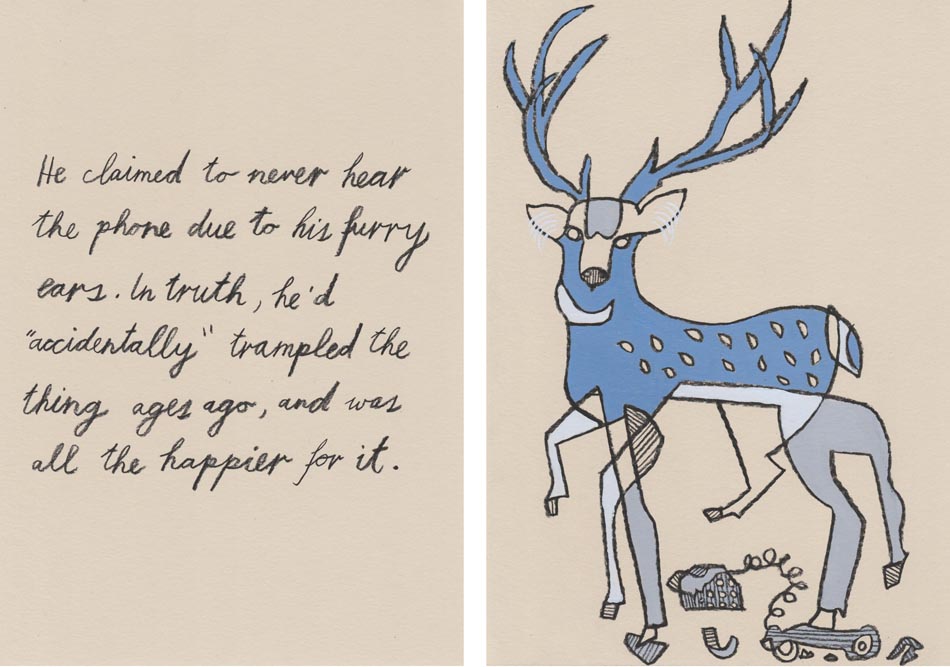 He claimed to never hear
the phone due to his furry
ears. In truth, he'd
"accidentally" trampled the
thing ages ago, and was
all the happier for it.